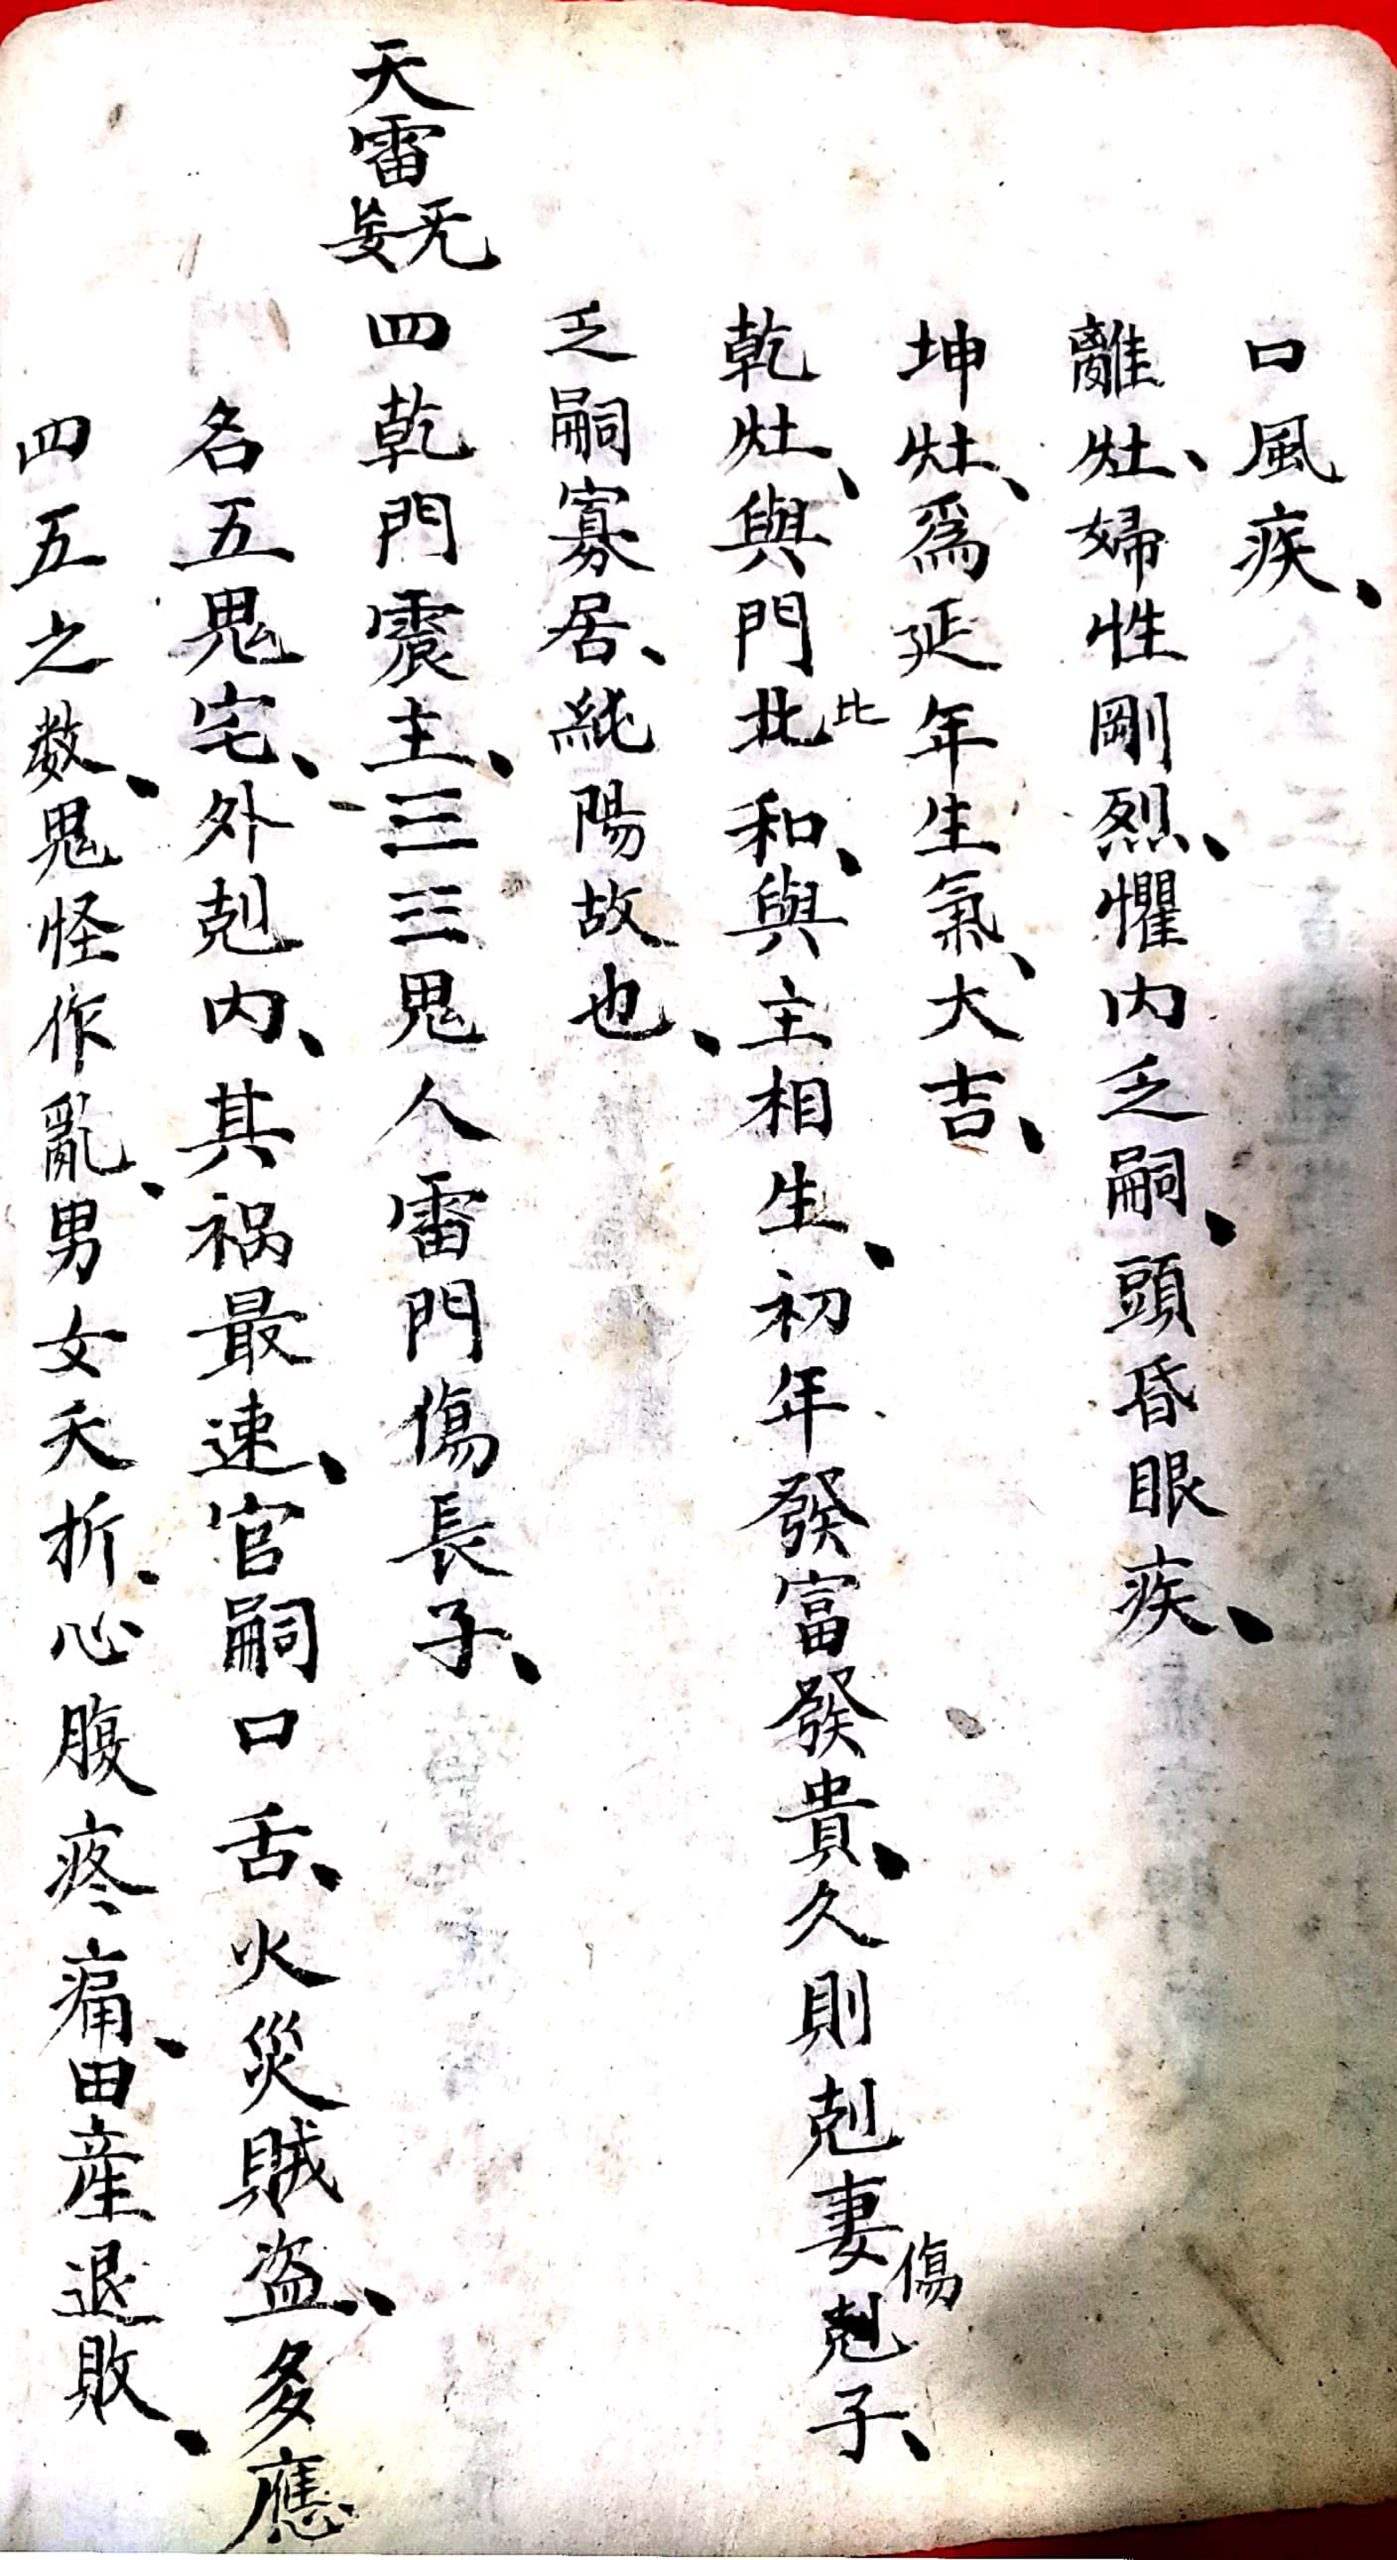 口風疾、
離灶、婦性剛烈、懼内乏嗣、頭昏眼疾、
坤灶、爲延年生氣、大吉、
乾灶、與門北比和、與主相生、初年發富發貴、久則剋妻剋傷子、
乏嗣寡居、純陽故也、
天雷无妄 四乾門震主、☰☳鬼人雷門傷長子、
名五鬼宅、外剋内、其禍最速、官嗣口舌、火災賊盗、多應
四五之数、鬼怪作亂、男女夭折、心腹疼痛、田産退敗、